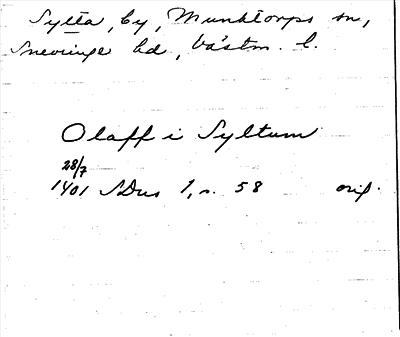 Sylta, by, Munktorps sn,
Snevringe hd, Västm. l.
Olaff i Syltum
28/7
1401 SDns 1, n. 58 orig.